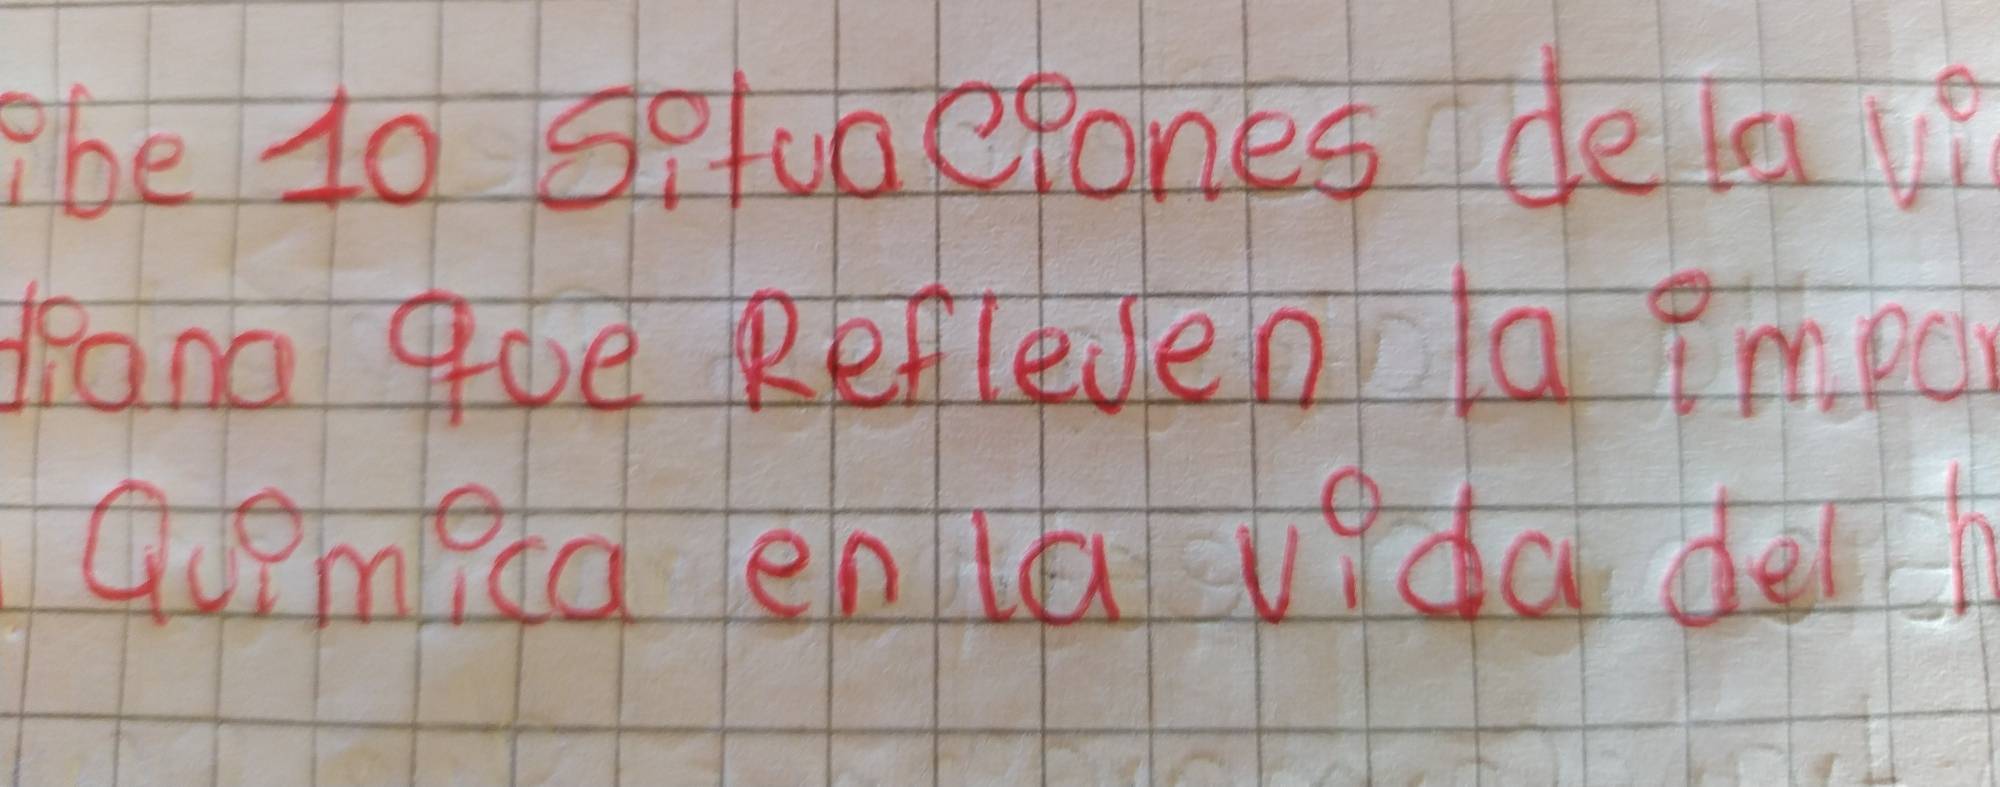 ibe 10 Situaciones de la vi
diana que Reflejen la impor
Quimica en la vida del h